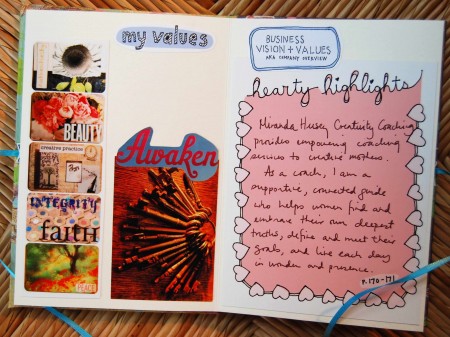 my values
BEAUTY
creative practice
INTEGRITY
FAITH
PEACE
Awaken
BUSINESS
VISION + VALUES
AKA COMPANY OVERVIEW
hearty highlights
Miranda Hersey Creativity Coaching
provides empowering coaching
services to creative mothers.
As a coach, I am a
supportive, connected guide
who helps women find and
embrace their own deepest
truths, define and meet their
goals, and live each day
in wonder and presence.
P. 170-171